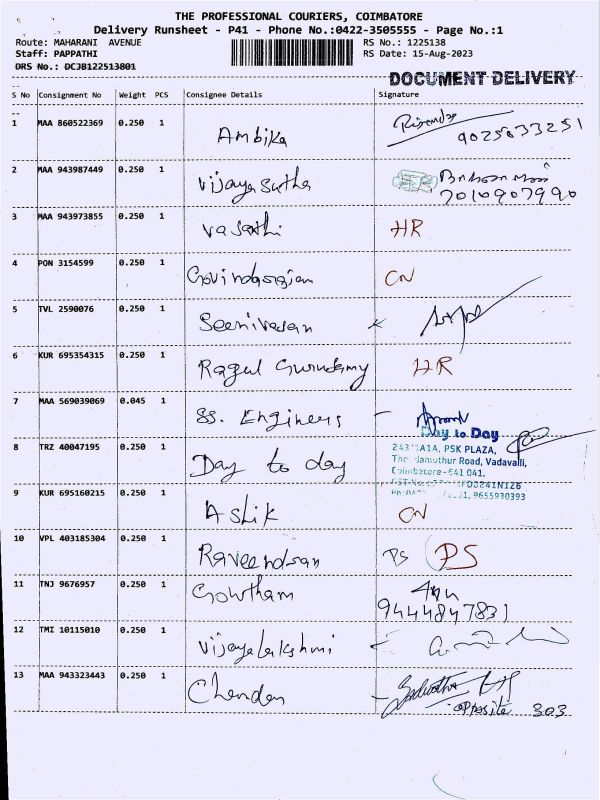 THE PROFESSIONAL COURIERS, COIMBATORE
Delivery Runsheet - P41 - Phone No.:0422-3505555 - Page No.:1
Route: MAHARANI AVENUE RS No.: 1225138
Staff: PAPPATHI RS Date: 15-Aug-2023
DRS No.: DCJB122513801
DOCUMENT DELIVERY
S No Consignment No Weight PCS Consignee Details Signature
1 MAA 860522369 0.250 1 Ambika
9025833251
2 MAA 943987449 0.250 1 Vijaya Sutha
7010907990
3 MAA 943973855 0.250 1 Vasanthi HR
4 PON 3154599 0.250 1 Govindarajan CN
5 TVL 2590076 0.250 1 Seenivasan x
6 KUR 695354315 0.250 1 Ragul Gurusamy HR
7 MAA 569039069 0.045 1 SS. Engineers -
Day to Day
8 TRZ 40047195 0.250 1 Day to day
PSK PLAZA,
Road, Vadavalli,
Coimbatore-641 041.
9655930393
9 KUR 695160215 0.250 1 Ashik CN
10 VPL 403185304 0.250 1 Raveendran PS PS
11 TNJ 9676957 0.250 1 Gowtham
9444847831
12 TMI 10115010 0.250 1 Vijayalakshmi -
13 MAA 943323443 0.250 1 Chendan -
opposite 303